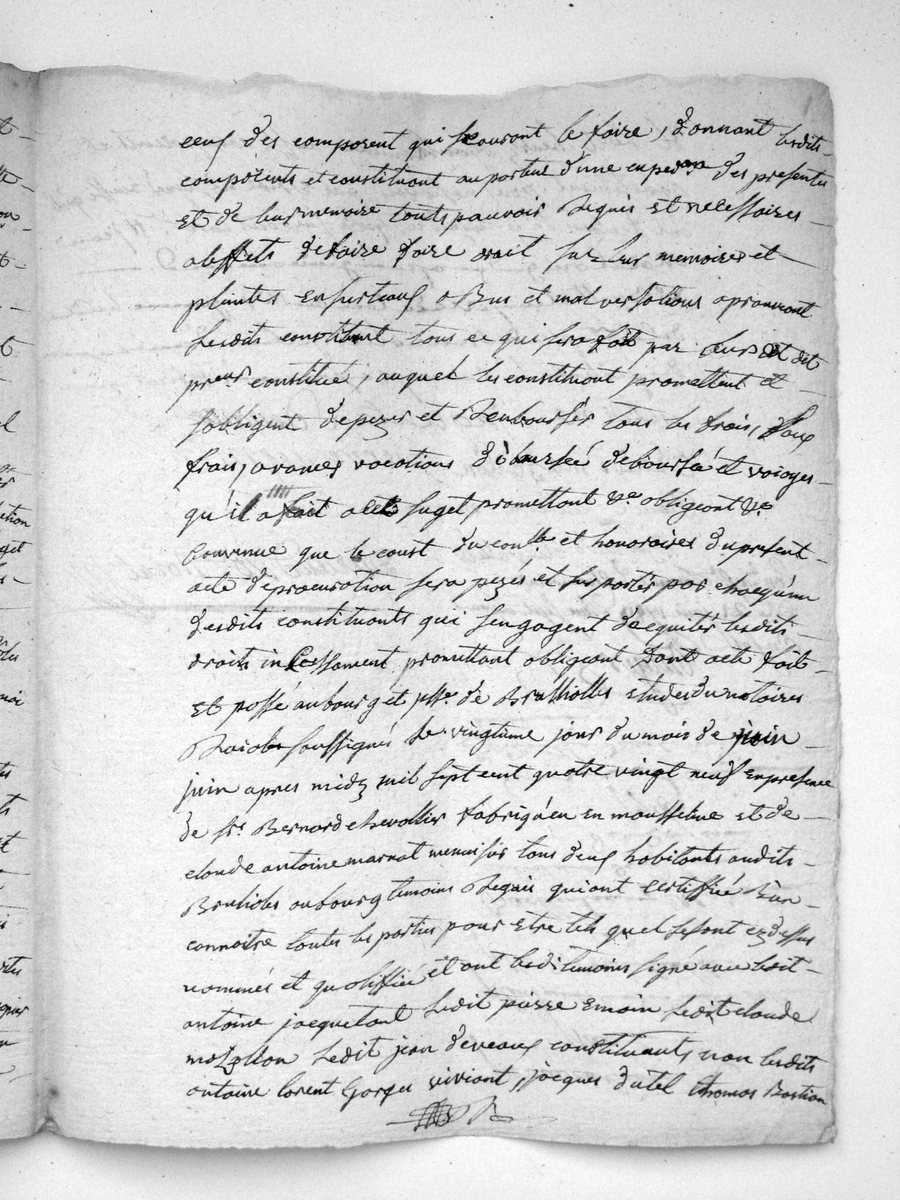 ceux des composent qui scauront le faire, donnant lesdits
composents et constituant au porteur d'une expedon des presentes
et de leur memoire touts pauvoir Requis et necessaires
a leffets de faire faire droit sur leur memoires et
plintes en surteaux a Bus et malversations aprouvont
lesdits constituant tous ce qui sera fait par leurs dit
preurs constitué, auquel les constituont promettent et
sobligent de pezer et Renbourser tous les frais, faux
frais, avances vacations débourseé debourseé et voiages
qu'il a fait a cet suget promettant &c obligeont &c
Convenue que le coust du conlle et honoraires du present
acte de procuration sera pezés et suportés par chacqu'un
desdits constituants qui sengagent dacquiter lesdits
droits incessament promettant obligeant dont acte fait
et passé au bourg et psse de Brulliolles etudes du notaires
Roial soussignés le vingtieme jours du mois de juin
juin apres midy mil sept cent quatre vingt neuf en presence
de sr. Bernard chevallier fabriquen en mousseline et de
claude antoine marnat menuisier tous deux habitants audits
Brulioles au bourg temoins Requis qui ont certiffiée Bien
connoitre toutes les parties pour etre tels quel le sont cy dessus
nommés et qualiffiée et ont lesdi temoins signé avec ledit
antoine jacquetant ledit pierre emain ledit claude
ledit jean deveaux constituants non lesdits
antoine lorent Gorges viviant, jacques dutel thomas Bastion